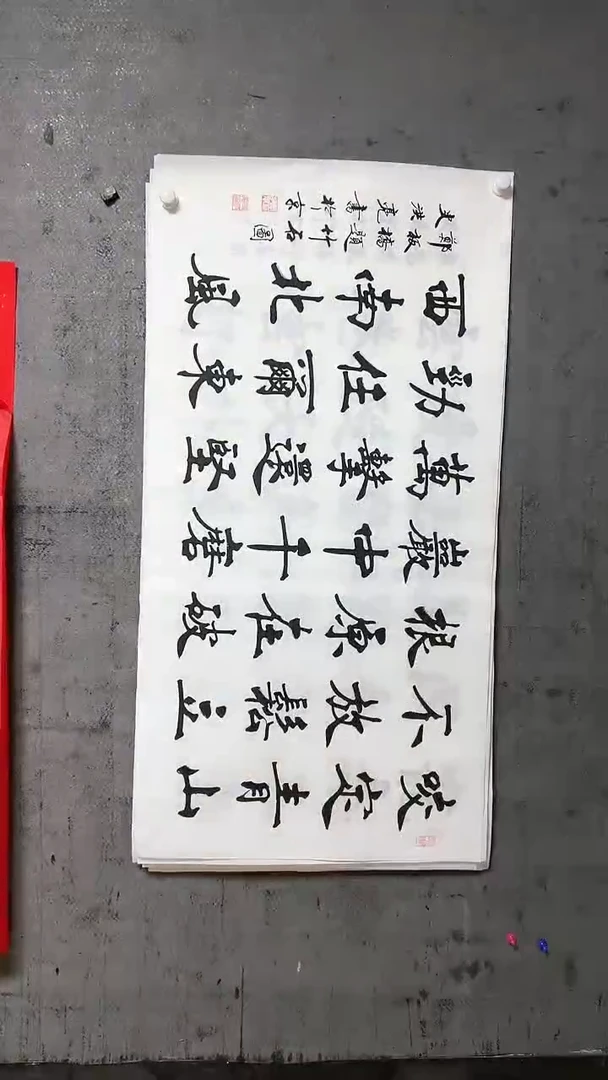 咬定青山
不放鬆立
根原在破
巖中千磨
萬擊還堅
勁任爾東
西南北風
鄭板橋題竹石圖
史洪亮書於京